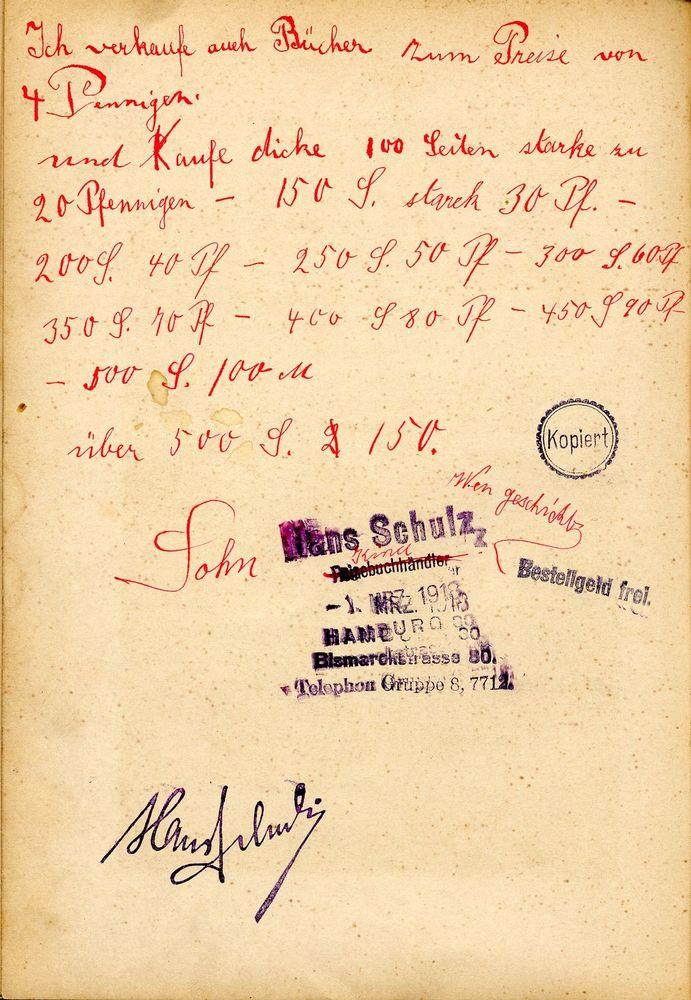 Ich verkaufe auch Bücher zum Preise von
4 Pfennigen.
und Kaufe dicke 100 Seiten starke zu
20 Pfennigen – 150 S. starck 30 Pf. –
200 S. 40 Pf – 250 S. 50 Pf – 300 S. 60 Pf
350 S. 70 Pf – 400 S 80 Pf – 450 S 90 Pf
– 500 S. 100 M
über 500 S. 150.
Kopiert
Wen geschickt
Sohn
Hans Schulz
Kind
Reisebuchhändler
Bestellgeld frei.
– 1. MRZ. 1913
HAMBURG 30
Bismarckstrasse 80.
Telephon Gruppe 8, 7712.
Hans Schulz